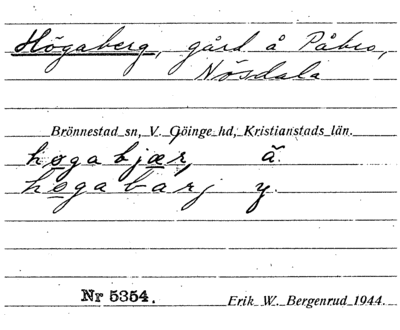 Högaberg, gård å Påbro,
Nösdala
Brönnestad sn, V. Göinge hd, Kristianstads län.
høgabjær, ä.
høgabarj y.
Nr 5354. Erik W. Bergenrud 1944.